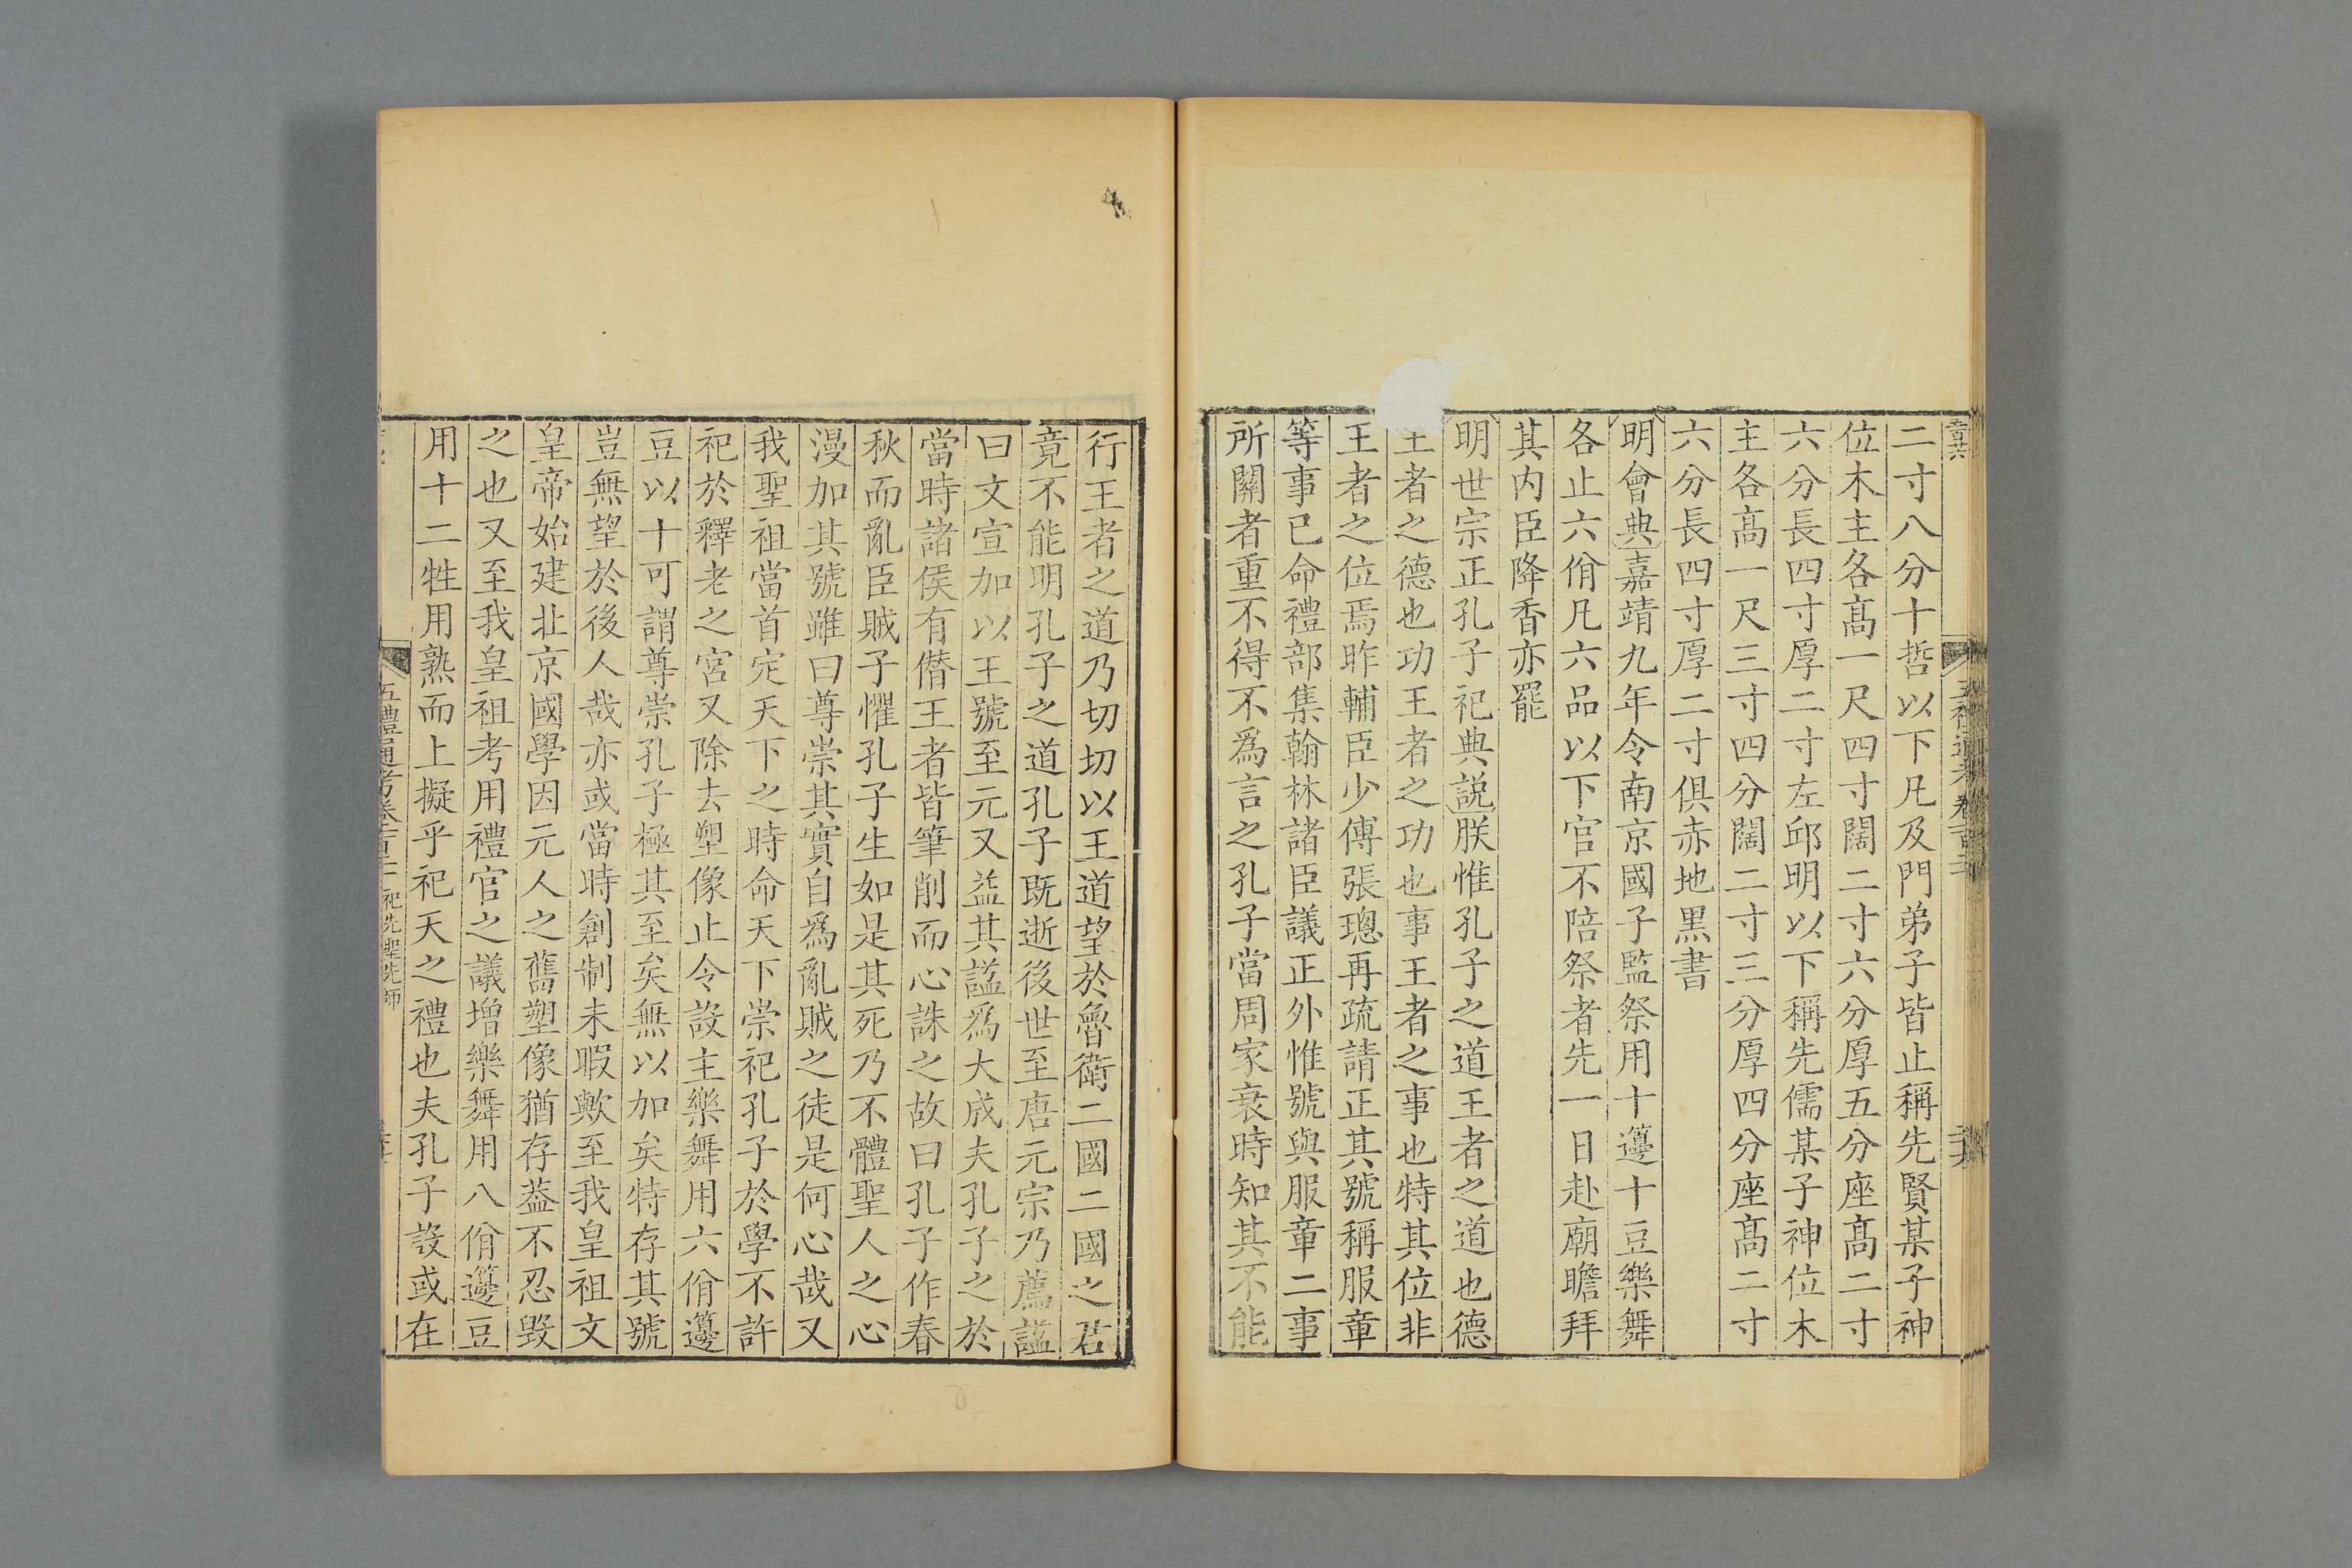 二寸八分十哲以下凡及門弟子皆止稱先賢某子神
位木主各高一尺四寸闊二寸六分厚五分座高二寸
六分長四寸厚二寸左邱明以下稱先儒某子神位木
主各高一尺三寸四分闊二寸三分厚四分座高二寸
六分長四寸厚二寸俱赤地黑書
明會典嘉靖九年令南京國子監祭用十籩十豆樂舞
各止六佾凡六品以下官不陪祭者先一日赴廟瞻拜
其内臣降香亦罷
明世宗正孔子祀典説朕惟孔子之道王者之道也德
王者之德也功王者之功也事王者之事也特其位非
王者之位焉昨輔臣少傅張璁再疏請正其號稱服章
等事已命禮部集翰林諸臣議正外惟號與服章二事
所關者重不得不爲言之孔子當周家衰時知其不能
行王者之道乃切切以王道望於魯衛二國二國之君
竟不能明孔子之道孔子既逝後世至唐元宗乃薦謚
曰文宣加以王號至元又益其謚爲大成夫孔子之於
當時諸侯有僭王者皆筆削而心誅之故曰孔子作春
秋而亂臣賊子懼孔子生如是其死乃不體聖人之心
漫加其號雖曰尊崇其實自爲亂賊之徒是何心哉又
我聖祖當首定天下之時命天下崇祀孔子於學不許
祀於釋老之宮又除去塑像止令設主樂舞用六佾籩
豆以十可謂尊崇孔子極其至矣無以加矣特存其號
豈無望於後人哉亦或當時創制未暇歟至我皇祖文
皇帝始建北京國學因元人之舊塑像猶存葢不忍毀
之也又至我皇祖考用禮官之議增樂舞用八佾籩豆
用十二牲用熟而上擬乎祀天之禮也夫孔子設或在
五禮通考卷一百二十 祀先聖先師